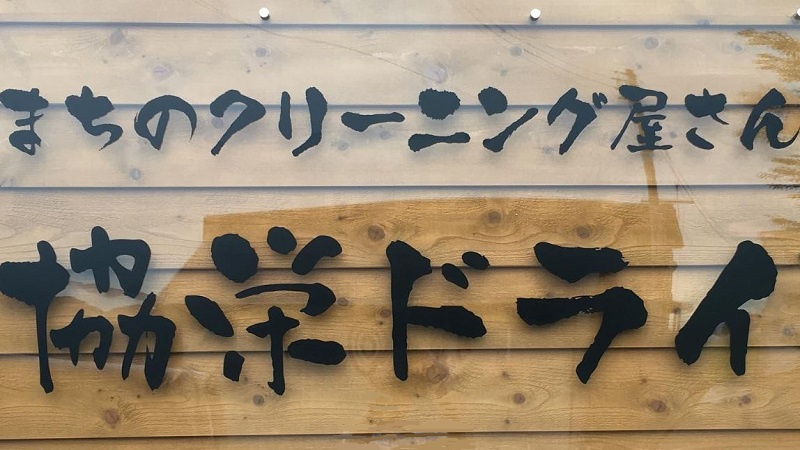 まちのクリーニング屋さん
協栄ドライ